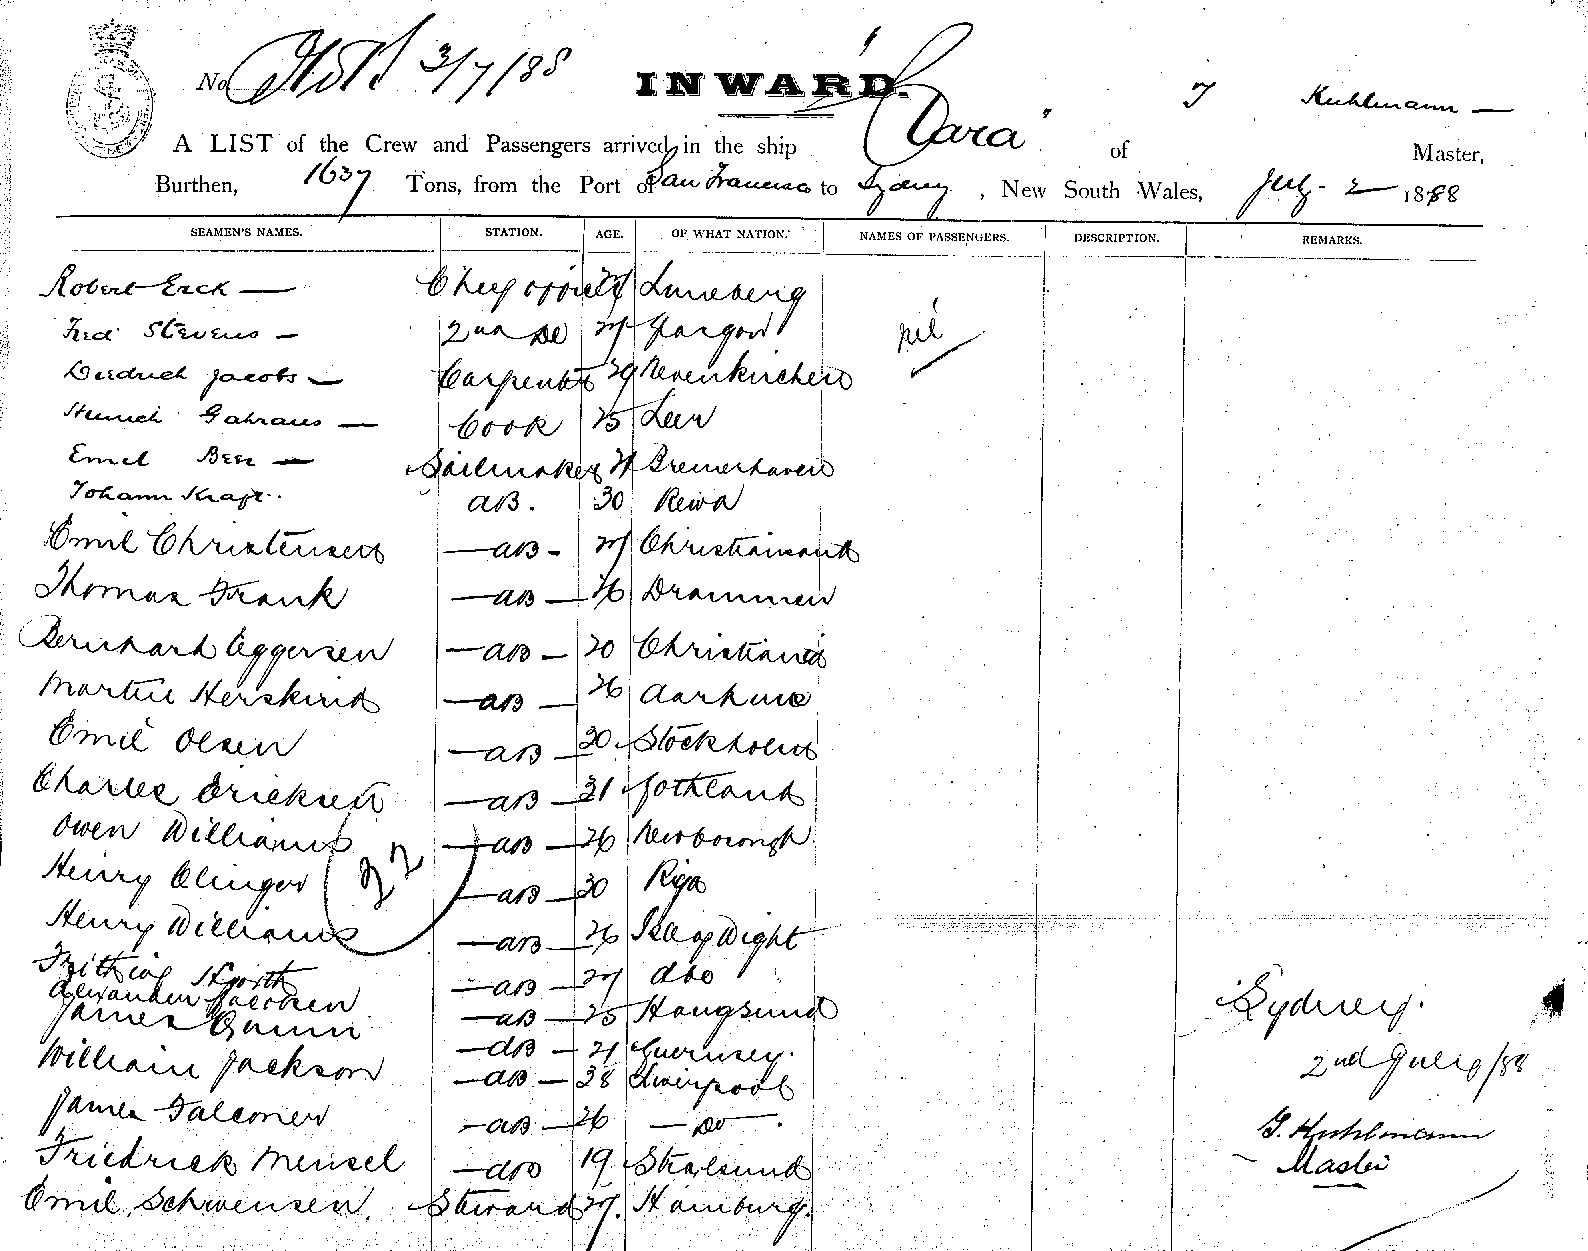 No 3/7/88
INWARD.
"Clara" J Kuhlmann —
A LIST of the Crew and Passengers arrived in the ship of Master,
Burthen, 1637 Tons, from the Port of San Francisco to Sydney, New South Wales, July 2 1888
SEAMEN'S NAMES. STATION. AGE. OF WHAT NATION. NAMES OF PASSENGERS. DESCRIPTION. REMARKS.
Robert Erck — Chief officer Luneberg
Fred Stevens — 2nd Do 27 Glasgow nil
Diedrich Jacobs — Carpenter 29 Neuenkirchen
Heinrich Gahraus — Cook 25 Leer
Emil Beer — Sailmaker Bremerhaven
Johann Kraft AB. 30 Rewa
Emil Christensen — AB - 27 Christiansand
Thomas Frank — AB — 26 Drammen
Bernhard Eggersen — AB — 20 Christiania
Martin Herskind — AB — 26 Aarhuus
Emil Olsen — AB — 30 Stockholm
Charles Ericksen — AB — 31 Gothland
Owen Williams — AB — 26 Newborough
22
Henry Olinger — AB — 30 Riga
Henry Williams — AB — 26 Isle of Wight
Frithiof Hjorth — AB — 27 do
Alexander Jacobsen — AB — 25 Haugsund
James Quinn — AB — 21 Guernsey.
William Jackson — AB — 38 Liverpool
James Falconer — AB — 26 — Do —
Friedrick Mensel — do 19 Stralsund
Emil Schwensen. Steward 27. Hamburg.
Sydney.
2nd July/88
J. Kuhlmann
Master